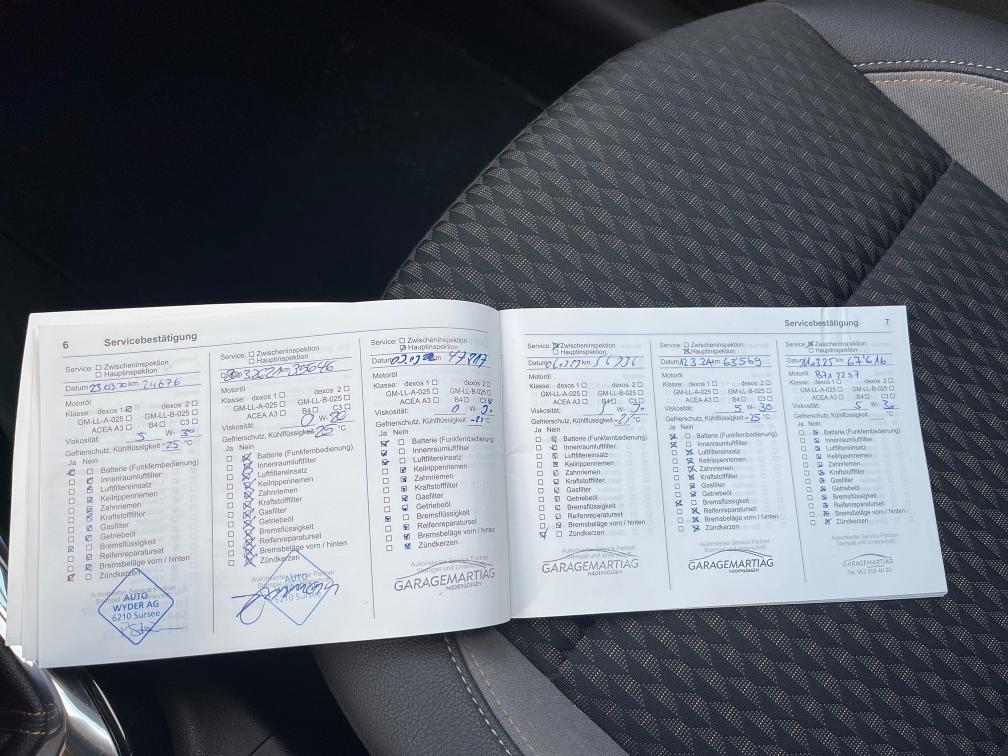 6 Servicebestätigung
Service: Zwischeninspektion
Hauptinspektion
Datum 23.03.20 km 24676
Motoröl
Klasse: dexos 1 dexos 2
GM-LL-A-025 GM-LL-B-025
ACEA A3 B4 C3
Viskosität: 5 W- 30
Gefrierschutz, Kühlflüssigkeit -25 °C
Ja Nein
Batterie (Funkfernbedienung)
Innenraumluftfilter
Luftfiltereinsatz
Keilrippenriemen
Zahnriemen
Kraftstofffilter
Gasfilter
Getriebeöl
Bremsflüssigkeit
Reifenreparaturset
Bremsbeläge vorn / hinten
Zündkerzen
Autorisierter Service Partner
AUTO
WYDER AG
6210 Sursee
Service: Zwischeninspektion
Hauptinspektion
km 35046
Motoröl
Klasse: dexos 1 dexos 2
GM-LL-A-025 GM-LL-B-025
ACEA A3 B4 C3
Viskosität: 0 W- 20
Gefrierschutz, Kühlflüssigkeit -25 °C
Ja Nein
Batterie (Funkfernbedienung)
Innenraumluftfilter
Luftfiltereinsatz
Keilrippenriemen
Zahnriemen
Kraftstofffilter
Gasfilter
Getriebeöl
Bremsflüssigkeit
Reifenreparaturset
Bremsbeläge vorn / hinten
Zündkerzen
Autorisierter Service Partner
AUTO
WYDER AG
6210 Sursee
Service: Zwischeninspektion
Hauptinspektion
Datum km
Motoröl
Klasse: dexos 1 dexos 2
GM-LL-A-025 GM-LL-B-025
ACEA A3 B4 C3
Viskosität: 0 W-
Gefrierschutz, Kühlflüssigkeit °C
Ja Nein
Batterie (Funkfernbedienung)
Innenraumluftfilter
Luftfiltereinsatz
Keilrippenriemen
Zahnriemen
Kraftstofffilter
Gasfilter
Getriebeöl
Bremsflüssigkeit
Reifenreparaturset
Bremsbeläge vorn / hinten
Zündkerzen
Autorisierter Service Partner
Stempel und Unterschrift
GARAGEMARTIAG
NIEDERGÖSGEN
Servicebestätigung 7
Service: Zwischeninspektion
Hauptinspektion
Datum km
Motoröl
Klasse: dexos 1 dexos 2
GM-LL-A-025 GM-LL-B-025
ACEA A3 B4 C3
Viskosität: W-
Gefrierschutz, Kühlflüssigkeit °C
Ja Nein
Batterie (Funkfernbedienung)
Innenraumluftfilter
Luftfiltereinsatz
Keilrippenriemen
Zahnriemen
Kraftstofffilter
Gasfilter
Getriebeöl
Bremsflüssigkeit
Reifenreparaturset
Bremsbeläge vorn / hinten
Zündkerzen
Autorisierter Service Partner
Stempel und Unterschrift
GARAGEMARTIAG
NIEDERGÖSGEN
Service: Zwischeninspektion
Hauptinspektion
Datum 12.3.24 km 63569
Motoröl
Klasse: dexos 1 dexos 2
GM-LL-A-025 GM-LL-B-025
ACEA A3 B4 C3
Viskosität: 5 W- 30
Gefrierschutz, Kühlflüssigkeit -25 °C
Ja Nein
Batterie (Funkfernbedienung)
Innenraumluftfilter
Luftfiltereinsatz
Keilrippenriemen
Zahnriemen
Kraftstofffilter
Gasfilter
Getriebeöl
Bremsflüssigkeit
Reifenreparaturset
Bremsbeläge vorn / hinten
Zündkerzen
Autorisierter Service Partner
Stempel und Unterschrift
GARAGEMARTIAG
NIEDERGÖSGEN
Service: Zwischeninspektion
Hauptinspektion
Datum km 67616
Motoröl
Klasse: dexos 1 dexos 2
GM-LL-A-025 GM-LL-B-025
ACEA A3 B4 C3
Viskosität: 5 W- 30
Gefrierschutz, Kühlflüssigkeit °C
Ja Nein
Batterie (Funkfernbedienung)
Innenraumluftfilter
Luftfiltereinsatz
Keilrippenriemen
Zahnriemen
Kraftstofffilter
Gasfilter
Getriebeöl
Bremsflüssigkeit
Reifenreparaturset
Bremsbeläge vorn / hinten
Zündkerzen
Autorisierter Service Partner
Stempel und Unterschrift
GARAGEMARTIAG
Tel. 062 858 40 20